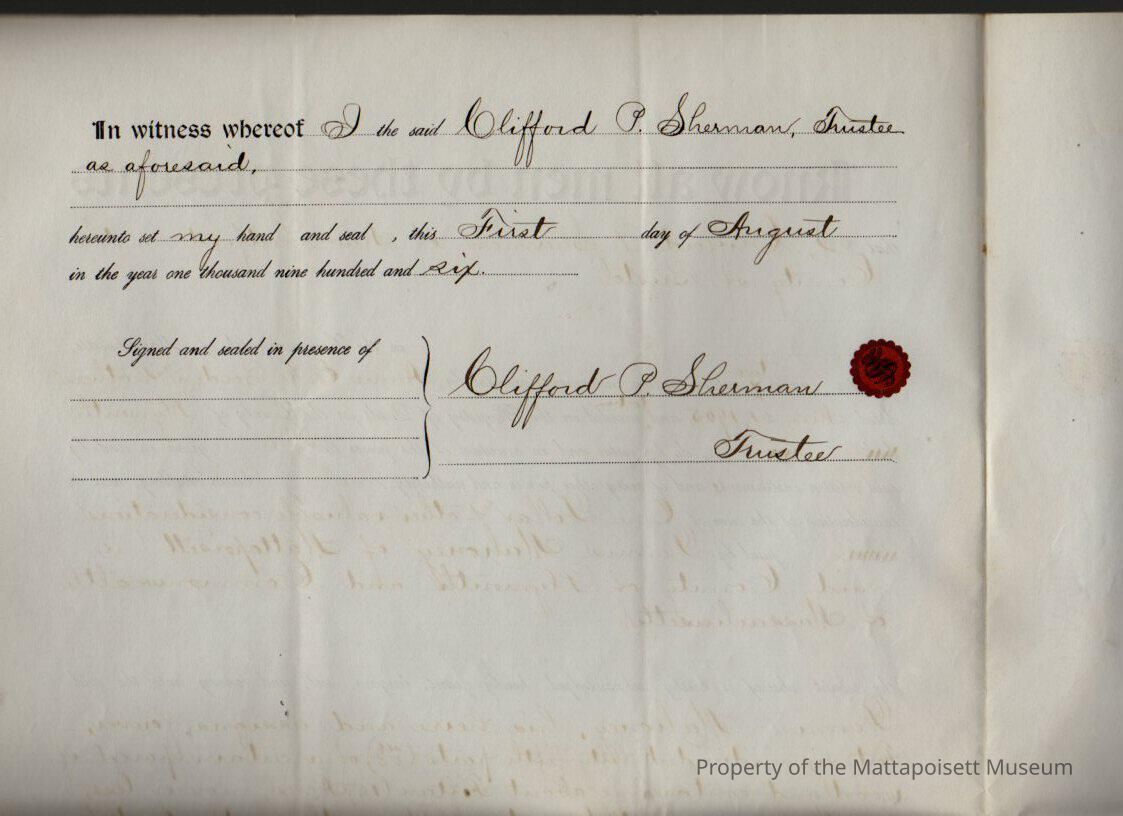 In witness whereof I the said Clifford P. Sherman, Trustee
as aforesaid,
hereunto set my hand and seal , this First day of August
in the year one thousand nine hundred and six.
Signed and sealed in presence of
Clifford P. Sherman
Trustee
Property of the Mattapoisett Museum